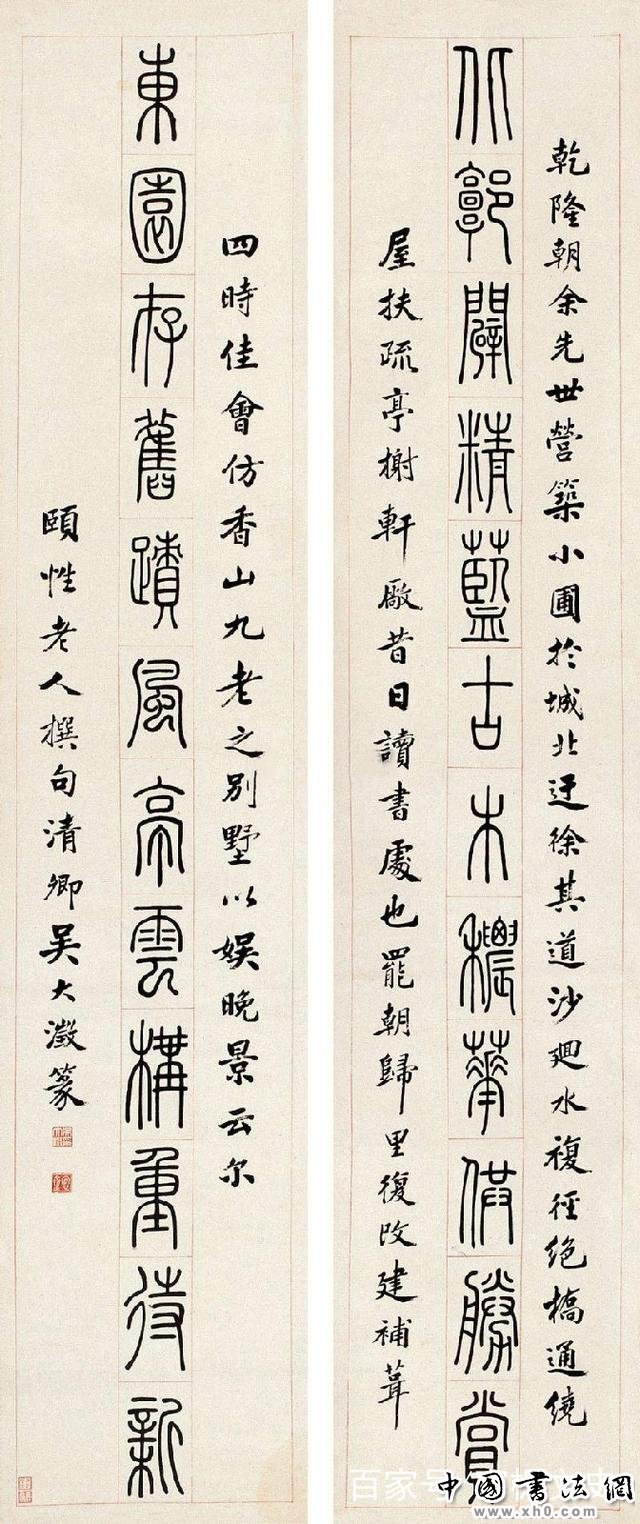 乾隆朝余先世營築小圃於城北迂徐其道沙廻水複徑絶橋通繞
北郭闢精藍古木穠華供勝賞
屋扶疏亭榭軒厰昔日讀書處也罷朝歸里復改建補葺
四時佳會仿香山九老之別墅以娱晚景云尔
東園存舊蹟風亭雲構重待新
頤性老人撰句清卿吳大澂篆
百家号
中國書法網
www.xh0.com